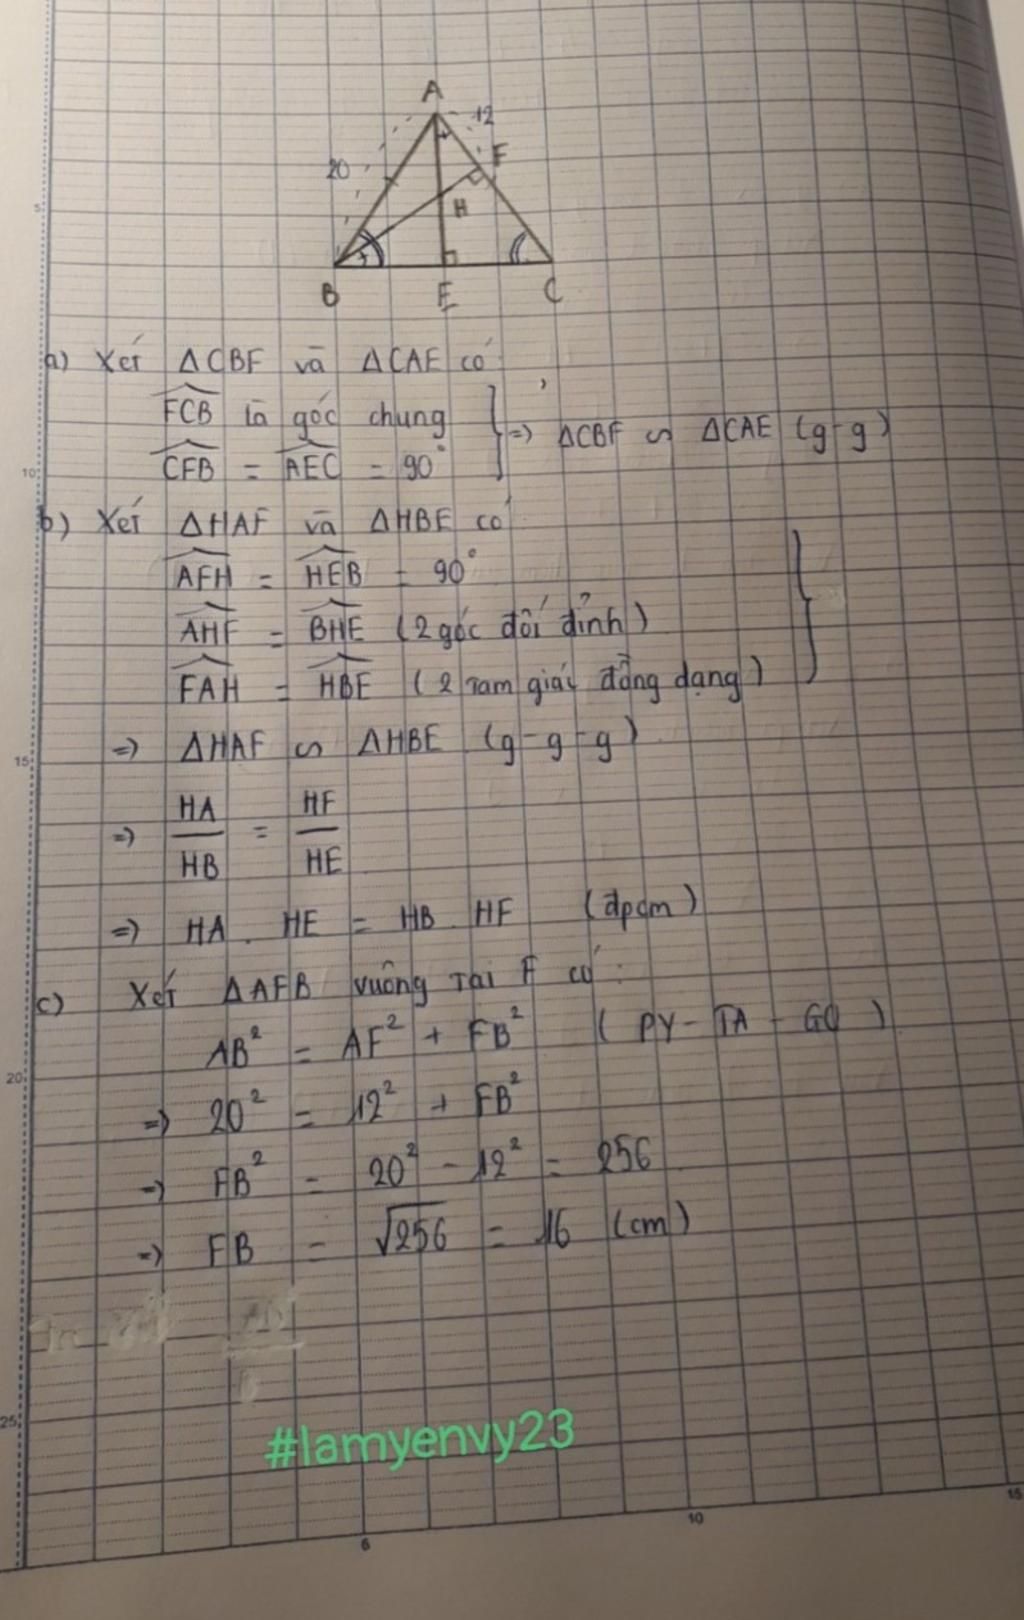 A
12
20
F
H
B
E
C
a) Xét ΔCBF và ΔCAE có
FCB là góc chung
CFB = AEC = 90°
=> ΔCBF ∽ ΔCAE (g-g)
b) Xét ΔHAF và ΔHBE có
AFH = HEB = 90°
AHF = BHE (2 góc đối đỉnh)
FAH = HBE (2 tam giác đồng dạng)
=> ΔHAF ∽ ΔHBE (g-g-g)
=> HA/HB = HF/HE
=> HA . HE = HB . HF (đpcm)
c) Xét ΔAFB vuông tại F có:
AB² = AF² + FB² (PY-TA-GO)
=> 20² = 12² + FB²
=> FB² = 20² - 12² = 256
=> FB = √256 = 16 (cm)
#lamyenvy23
5
10
15
20
25
6
10
15